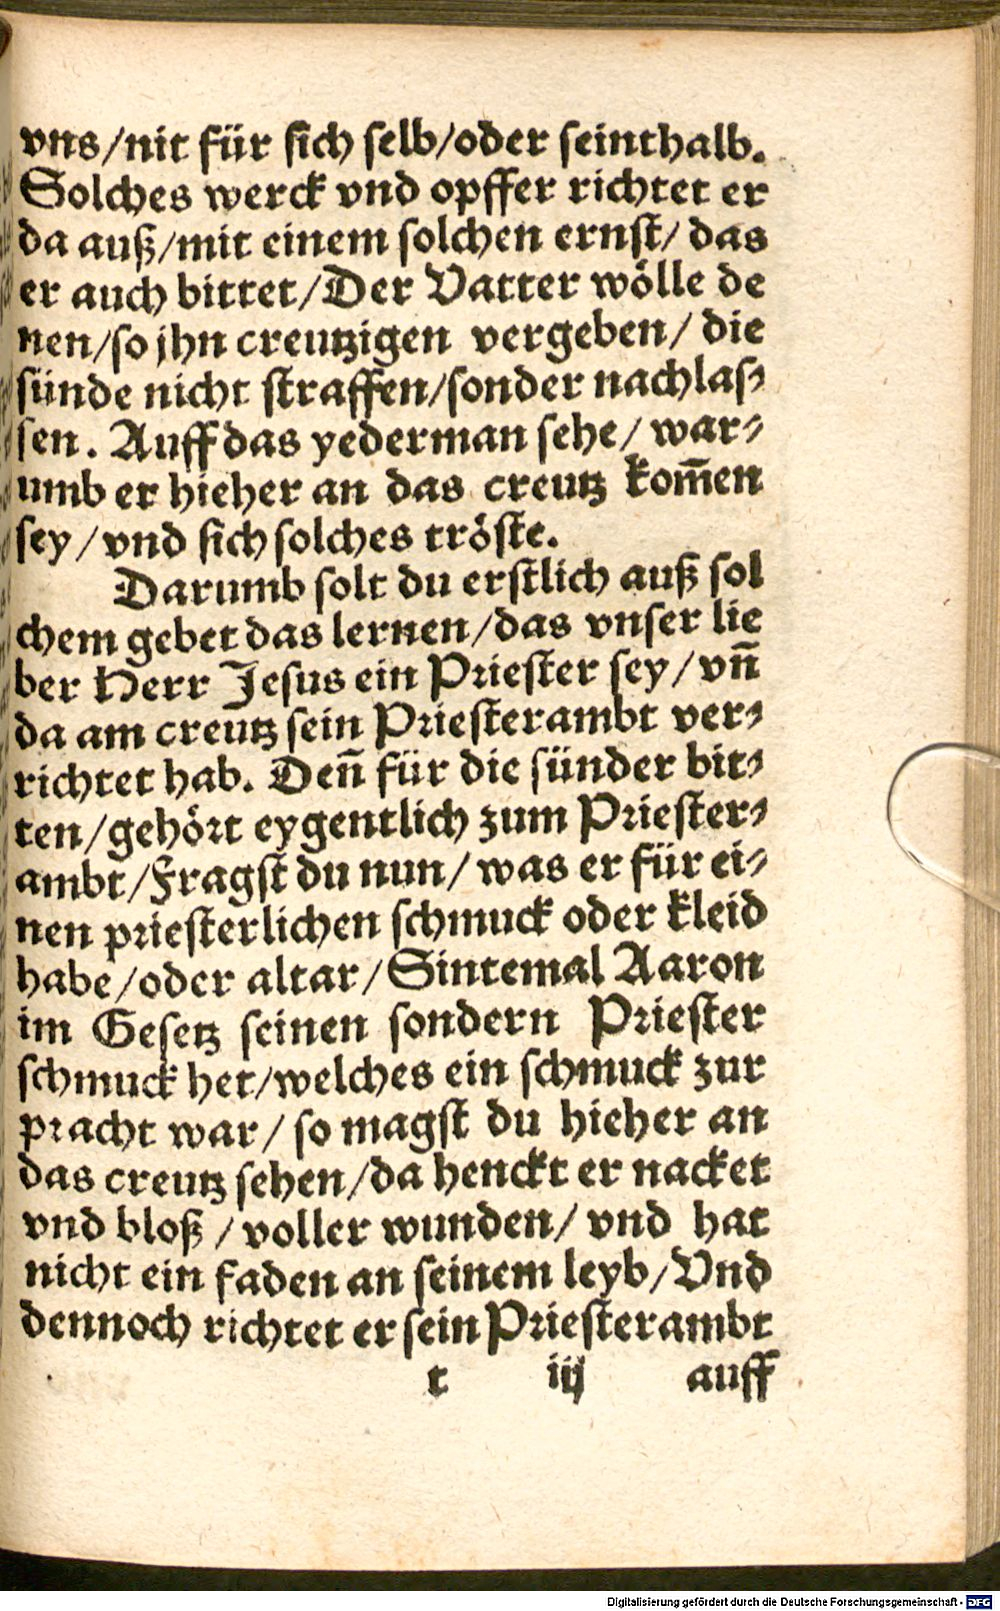 vns/nit für sich selb/oder seinthalb.
Solches werck vnd opffer richtet er
da auß/mit einem solchen ernst/ das
er auch bittet/Der Vatter wölle de
nen/so jhn creutzigen vergeben/ die
sünde nicht straffen/sonder nachlas⸗
sen. Auff das yederman sehe/ war⸗
umb er hieher an das creutz kom̄en
sey/vnd sich solches tröste.
Darumb solt du erstlich auß sol
chem gebet das lernen/das vnser lie
ber Herr Jesus ein Priester sey/ vn̄
da am creutz sein Priesterambt ver⸗
richtet hab. Den̄ für die sünder bit⸗
ten/gehört eygentlich zum Priester⸗
ambt/Fragst du nun/ was er für ei⸗
nen priesterlichen schmuck oder kleid
habe/oder altar/Sintemal Aaron
im Gesetz seinen sondern Priester
schmuck het/welches ein schmuck zur
pracht war/ so magst du hieher an
das creutz sehen/da henckt er nacket
vnd bloß/voller wunden/ vnd hat
nicht ein faden an seinem leyb/Vnd
dennoch richtet er sein Priesterambt
t iij auff
Digitalisierung gefördert durch die Deutsche Forschungsgemeinschaft - DFG